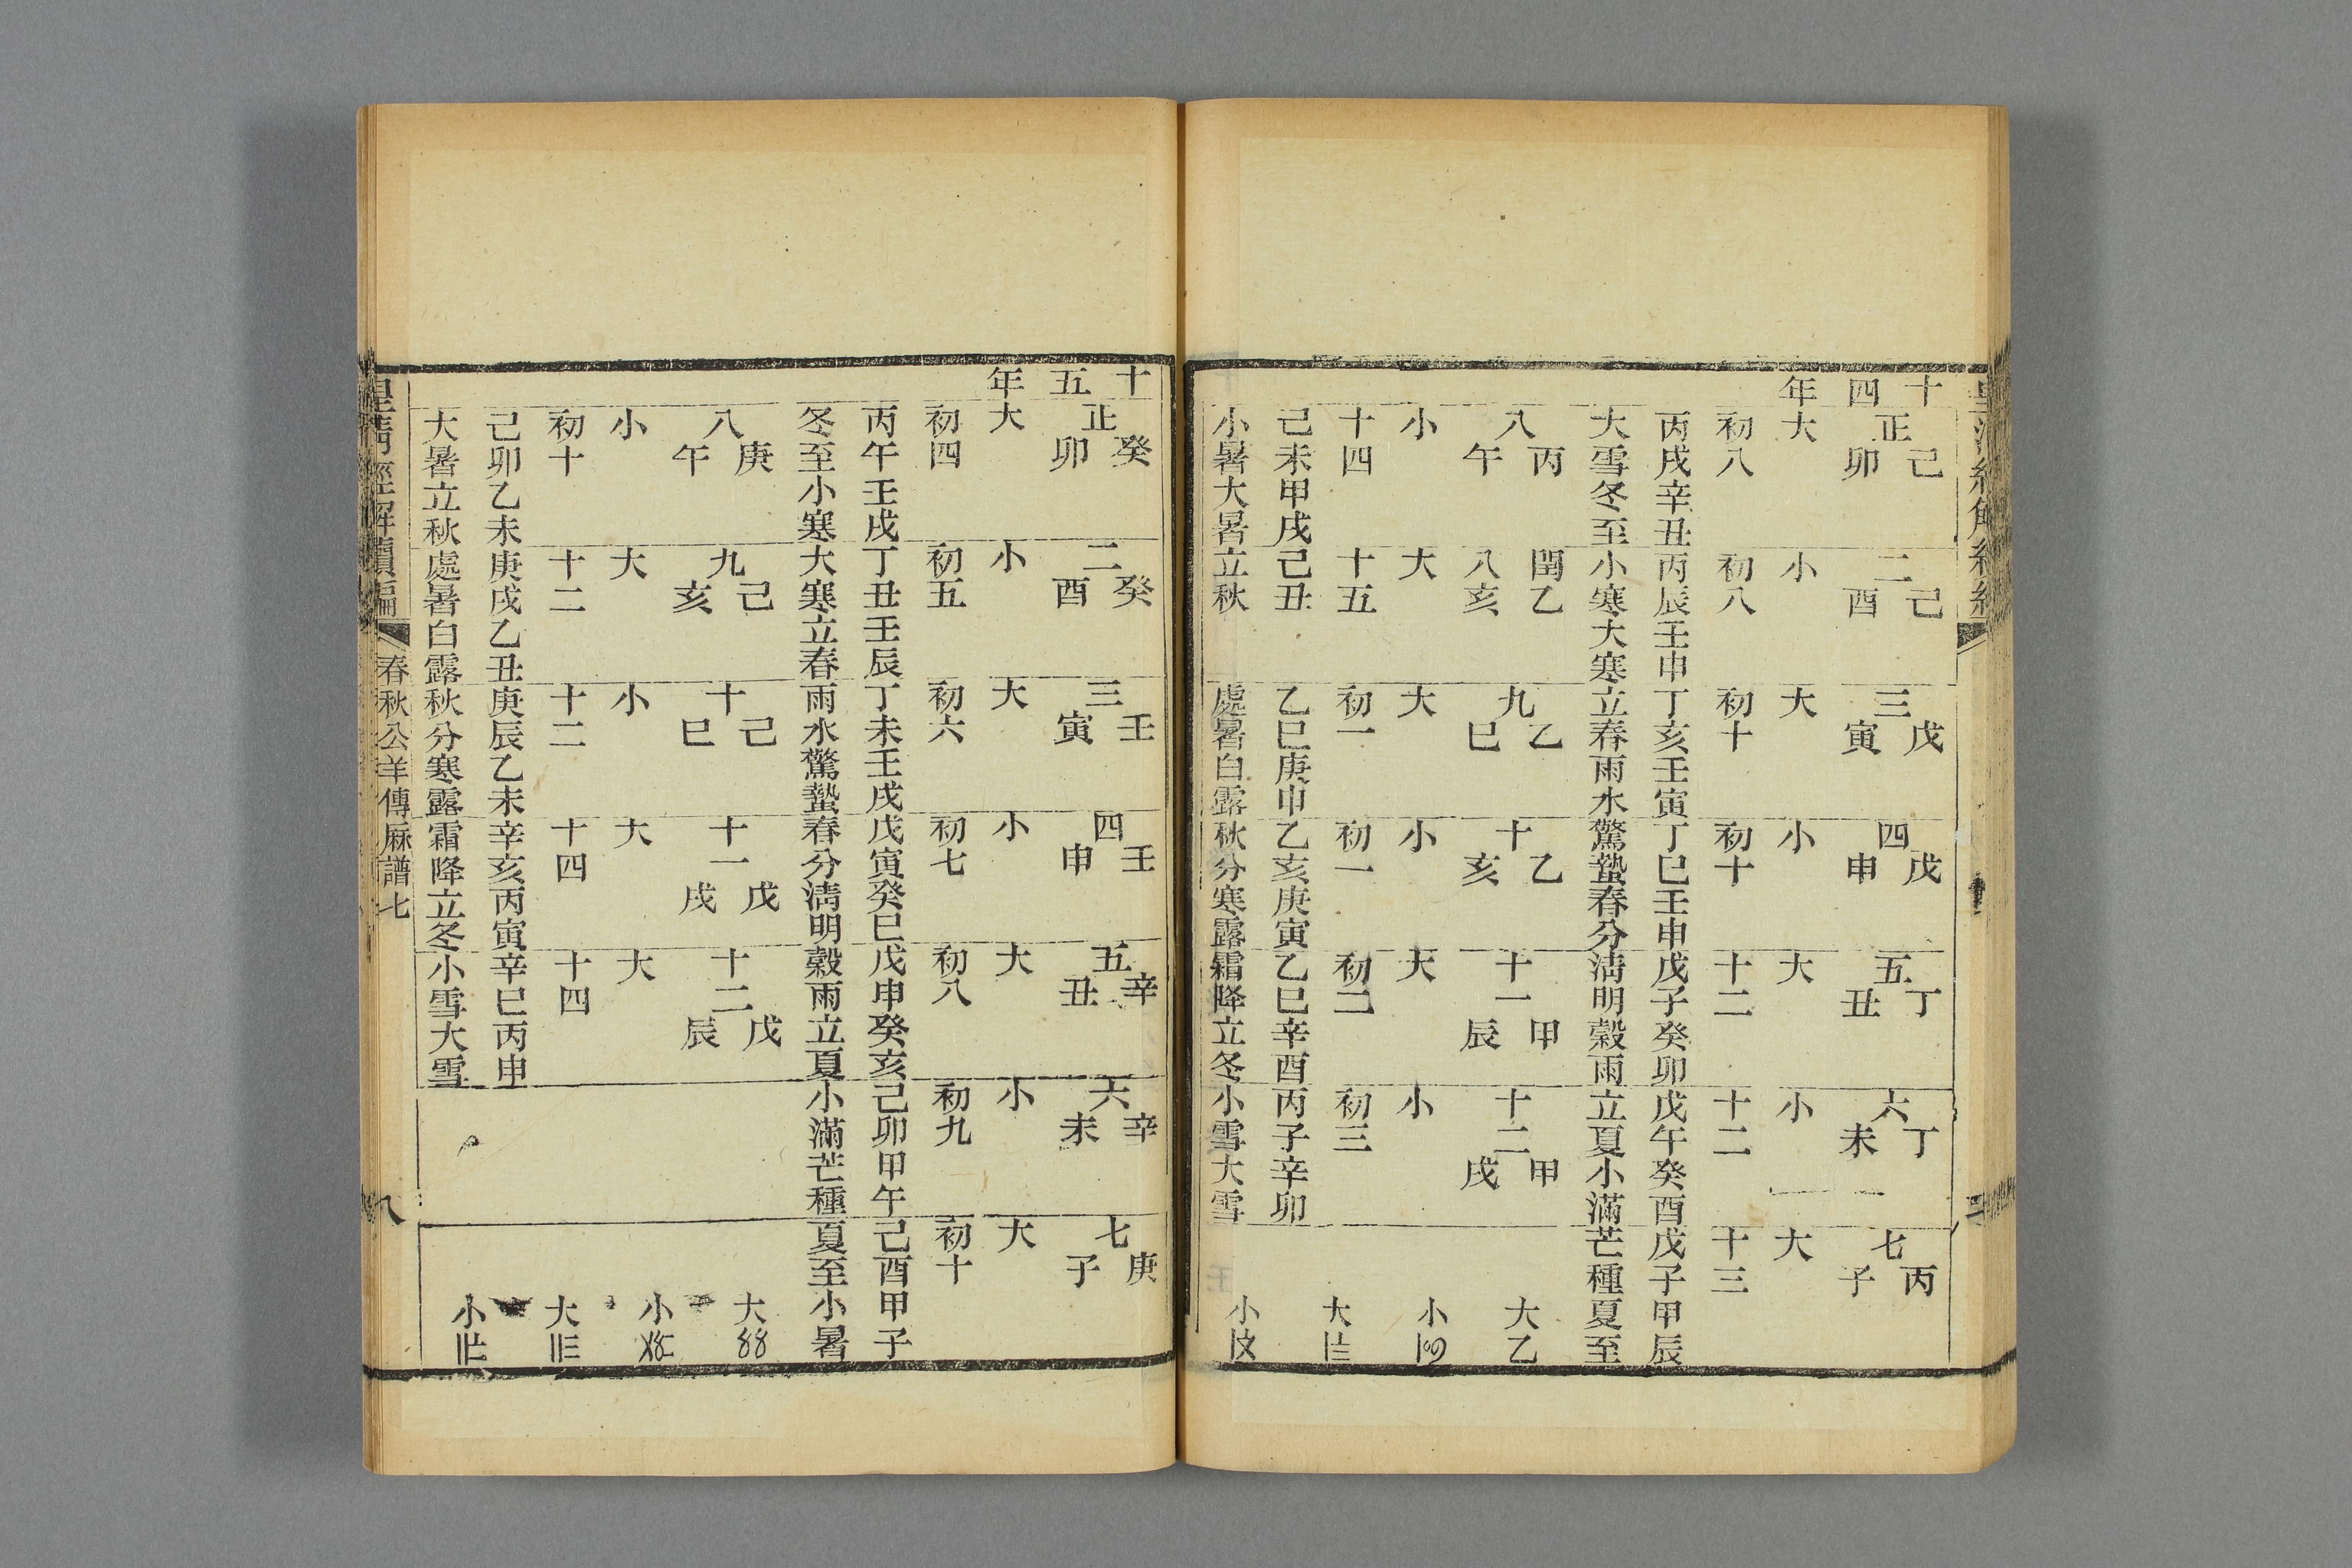 十四年
正己卯
大
初八
丙戌辛丑
大雪冬至
二己酉
小
初八
丙辰壬申
小寒大寒
三戊寅
大
初十
丁亥壬寅
立春雨水
四戊申
小
初十
丁巳壬申
驚蟄春分
五丁丑
大
十二
戊子癸卯
淸明穀雨
六丁未
小
十二
戊午癸酉
立夏小滿
七丙子
大
十三
戊子甲辰
芒種夏至
八丙午
小
十四
己未甲戌
小暑大暑
閏八乙亥
大
十五
己丑
立秋
九乙巳
大
初一
乙巳庚申
處暑白露
十乙亥
小
初一
乙亥庚寅
秋分寒露
十一甲辰
大
初二
乙巳辛酉
霜降立冬
十二甲戌
小
初三
丙子辛卯
小雪大雪
大
小
大
小
十五年
正癸卯
大
初四
丙午壬戌
冬至小寒
二癸酉
小
初五
丁丑壬辰
大寒立春
三壬寅
大
初六
丁未壬戌
雨水驚蟄
四壬申
小
初七
戊寅癸巳
春分淸明
五辛丑
大
初八
戊申癸亥
穀雨立夏
六辛未
小
初九
己卯甲午
小滿芒種
七庚子
大
初十
己酉甲子
夏至小暑
八庚午
小
初十
己卯乙未
大暑立秋
九己亥
大
十二
庚戌乙丑
處暑白露
十己巳
小
十二
庚辰乙未
秋分寒露
十一戊戌
大
十四
辛亥丙寅
霜降立冬
十二戊辰
大
十四
辛巳丙申
小雪大雪
大
小
大
小
皇淸經解續編
春秋公羊傳厤譜七
八